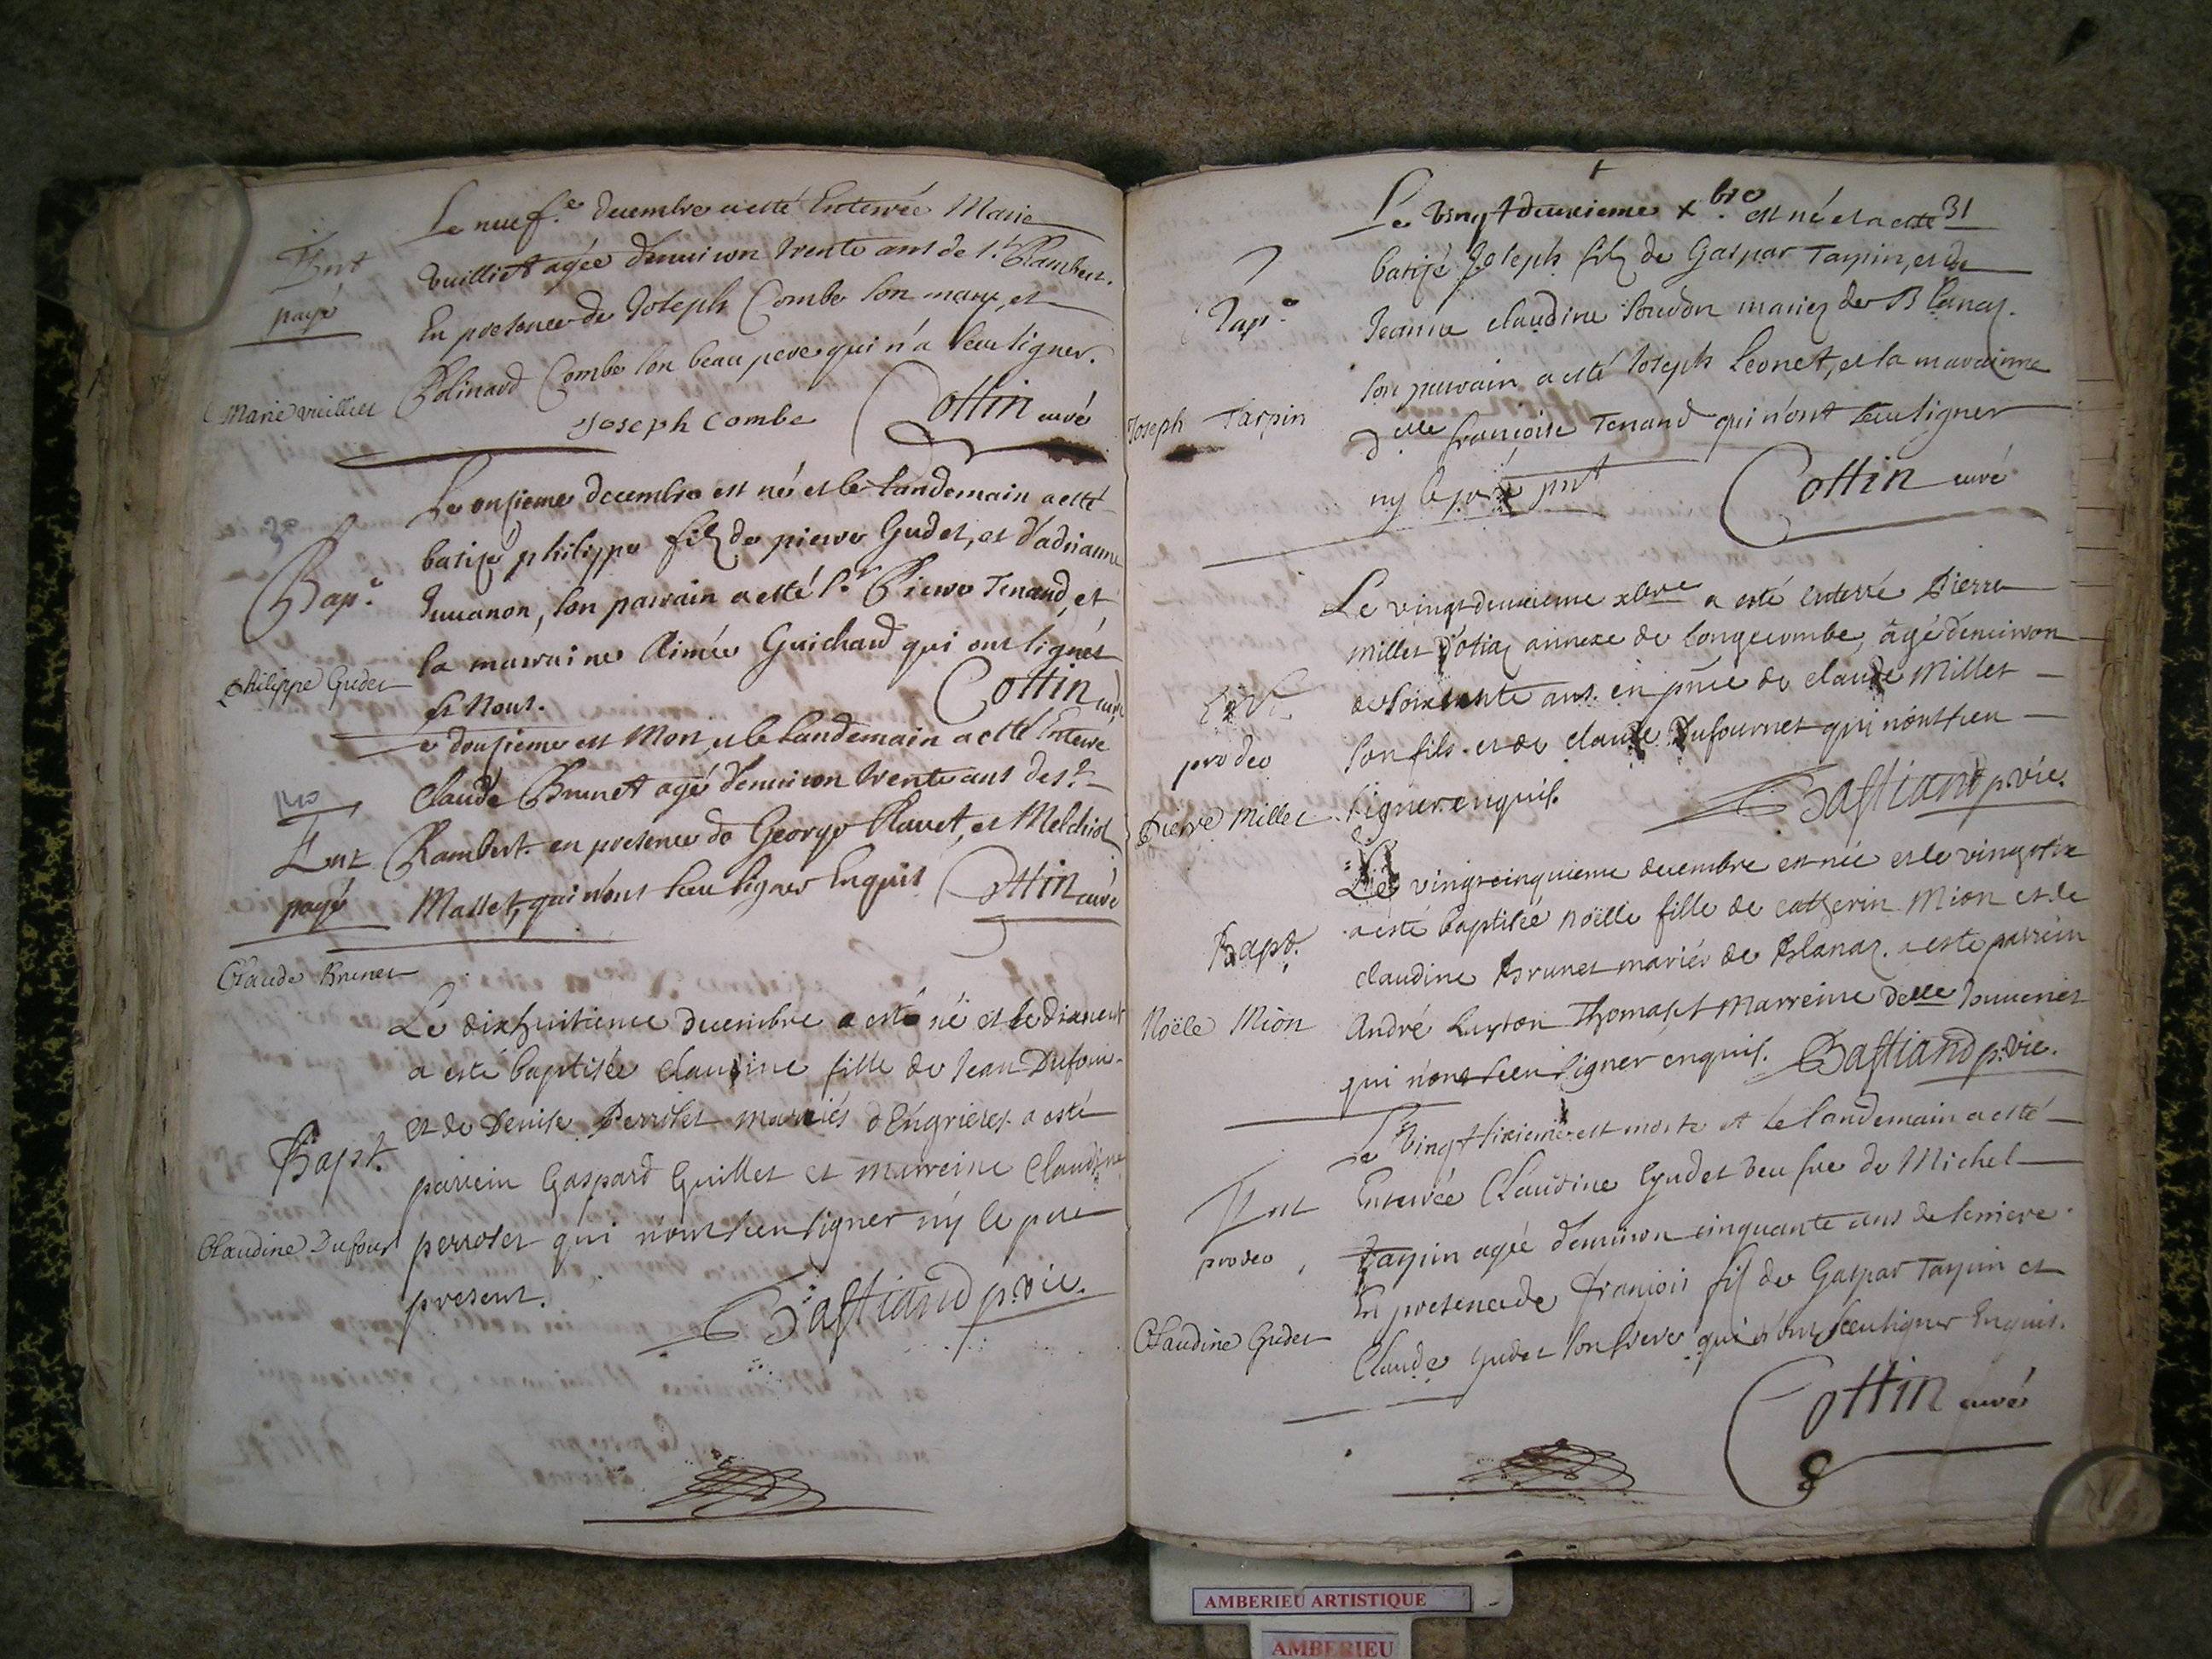 Le neuf.e decembre a esté Enterrée Marie
Ent
vuilliet agée d'environ trente ans de St. Rambert.
payé
En presence de Joseph Combe son mary, et
Marie vuilliet
Combe son beau pere qui n'a sceu signer.
Joseph Combe Cottin curé
Le onsieme decembre est né et le landemain a esté
batisé philippe filz de pierre Gudet, et d'adrianne
Bap.e
son parrain a esté Sr. Pierre Tenand, et
la marraine Aimée Guichard qui ont signés
Philippe Gudet
et Nous. Cottin curé
Le dousieme est Mort, et le landemain a esté Enterré
Claude Brunet agé d'environ trente ans de St.
Ent
Rambert. en presence de George Ravet, et Melchiol
payé
Masset, qui n'ont sceu signer Enquis Cottin curé
Claude Brunet
Le dixhuitieme decembre a esté né et le dixneuf
a esté baptisée claudine fille de Jean Dufour
et de Denise Perrolet mariés d'Engrieres a esté
Bapt.
parrein Gaspard Guillet et marreine Claudine
Claudine Dufour
perrolet qui n'ont sceu signer ny le pere
present. Bastiand p. vic.
31
Le vingtdeuxieme xbre est né et a esté
batisé Joseph filz de Gaspar Tarpin, et de
Bap.e
Jeanne claudine mariez de Blanaz.
son parrain a esté Joseph Leonet, et la marainne
Joseph Tarpin
delle francoise Tenand qui n'ont sceu signer
ny le pere pnt Cottin curé
Le vingtdeuxieme xbre a esté enterré Pierre
millet d'otiaz annexe de longecombe, agé d'environ
de soixante ans. en pnce de claude Millet
pro deo
son fils. et de claude Dufournet qui n'ont sceu
Pierre Millet
signer enquis. Bastiand p. vic.
Le vingtcinquieme decembre est née et le vingtsix
a esté baptisée Noëlle fille de catherin Mion et de
Bapt.
claudine Brunet mariés de Blanaz. a esté parrein
Noële Mion
André Luyton Thomasset Marreine delle Jouvenet
qui n'ont sceu signer enquis. Bastiand p. vic.
Le vingtsixieme est morte et le landemain a esté
Ent
Enterrée Claudine Gudet veufve de Michel
pro deo
Tarpin agée d'environ cinquante ans
En presence de françois filz de Gaspar Tarpin et
Claudine Gudet
Claude Gudet son frere qui n'ont sceu signer Enquis.
Cottin curé
AMBERIEU ARTISTIQUE
AMBERIEU